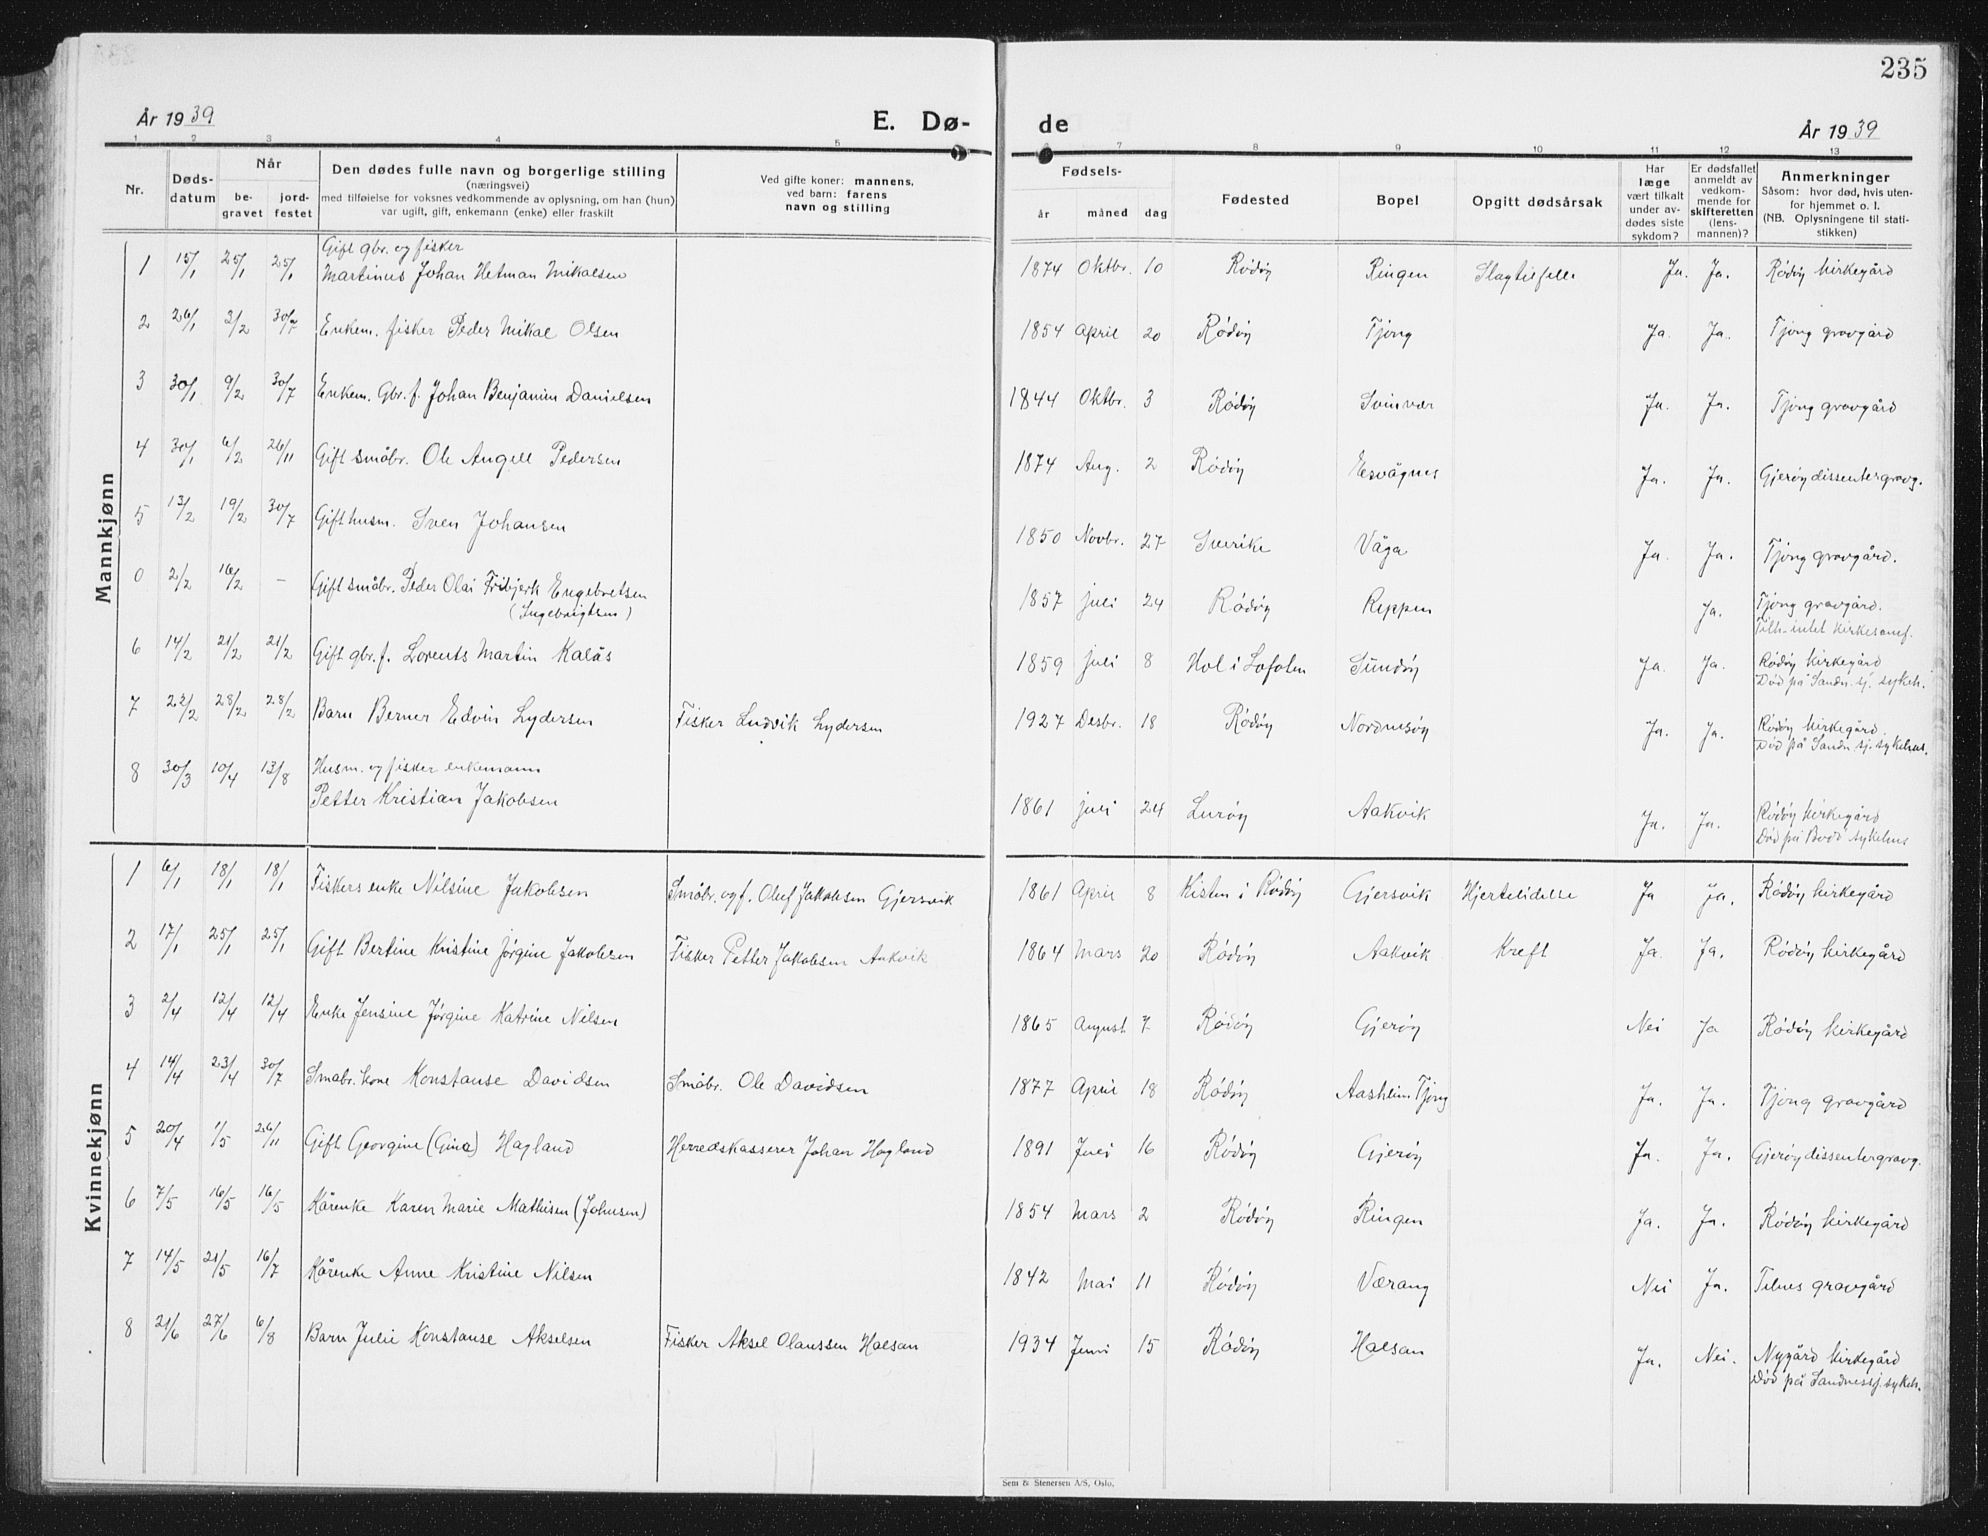 235
År 1939
E. Dø-
de
År 1939
1 2 3 4 5 6 7 8 9 10 11 12 13
Nr.
Døds-
datum
Når
be-
gravet
jord-
festet
Den dødes fulle navn og borgerlige stilling
(næringsvei)
med tilføielse for voksnes vedkommende av oplysning, om han (hun)
var ugift, gift, enkemann (enke) eller fraskilt
Ved gifte koner: mannens,
ved barn: farens
navn og stilling
Fødsels-
år
måned
dag
Fødested
Bopel
Opgitt dødsårsak
Har
læge
vært tilkalt
under av-
dødes siste
sykdom?
Er dødsfallet
anmeldt av
vedkom-
mende for
skifteretten
(lens-
mannen)?
Anmerkninger
Såsom: hvor død, hvis uten-
for hjemmet o. l.
(NB. Oplysningene til stati-
stikken)
Mannkjønn
Gift gbr. og fisker
1 15/1 25/1 25/1 Martinus Johan Hetman Mikalsen 1874 Oktbr. 10 Rødøy Ringen Slagtilfelle Ja. Ja. Rødøy kirkegård
2 26/1 3/2 30/7 Enkem. fisker Peder Mikal Olsen 1854 April 20 Rødøy Tjong Ja. Ja. Tjong gravgård
3 30/1 9/2 30/7 Enkem. Gbr. f. Johan Benjamin Danielsen 1844 Oktbr. 3 Rødøy Svinvær Ja. Ja. Tjong gravgård
4 30/1 6/2 26/11 Gift småbr. Ole Angell Pedersen 1874 Aug. 2 Rødøy Esvågnes Ja. Ja. Gjerøy dissentergravg.
5 13/2 19/2 30/7 Gift husm. Sven Johansen 1850 Novbr. 27 Sverike Våga Ja. Ja. Tjong gravgård.
0 2/2 16/2 – Gift småbr. Peder Olai Fribjerk Engebretsen 1857 juli 24 Rødøy Reppen Ja. Tjong gravgård.
(Ingebrigtsen) Tilh. intet kirkesamf.
6 14/2 21/2 21/2 Gift gbr. f. Lorents Martin Kalås 1859 juli 8 Hol i Lofoten Sundøy Ja. Ja. Rødøy kirkegård
Død på Sandn. sj. sykeh.
7 22/2 28/2 28/2 Barn Berner Edvin Lydersen Fisker Ludvik Lydersen 1927 Desbr. 18 Rødøy Nordnesøy Ja. Ja. Rødøy kirkegård.
Død på Sandn. sj. sykehus.
Husm. og fisker enkemann
8 30/3 10/4 13/8 Petter Kristian Jakobsen 1861 juli 24 Lurøy Aakvik Ja. Ja. Rødøy kirkegård
Død på Bodø sykehus
Kvinnekjønn
1 6/1 18/1 18/1 Fiskers enke Nilsine Jakobsen Småbr. og f. Oluf Jakobsen Gjersvik 1861 April 8 Kisten i Rødøy Gjersvik Hjertelidelse Ja Ja. Rødøy kirkegård
2 17/1 25/1 25/1 Gift Bertine Kristine Jørgine Jakobsen Fisker Petter Jakobsen Aakvik 1864 Mars 20 Rødøy Aakvik Kreft Ja. Ja. Rødøy kirkegård
3 2/4 12/4 12/4 Enke Jensine Jørgine Katrine Nilsen 1865 August 7 Rødøy Gjerøy Nei Ja Rødøy kirkegård
4 14/4 23/4 30/7 Småbr. kone Konstanse Davidsen Småbr. Ole Davidsen 1877 April 18 Rødøy Aasheim Tjong Ja. Ja. Tjong gravgård
5 20/4 1/5 26/11 Gift Georgine (Gina) Hagland Herredskasserer Johan Hagland 1891 Juli 16 Rødøy Gjerøy Ja. Ja. Gjerøy dissentergravg.
6 7/5 16/5 16/5 Kårenke Karen Marie Mathisen (Johnsen) 1854 Mars 2 Rødøy Ringen Ja. Ja. Rødøy kirkegård
7 14/5 21/5 16/7 Kårenke Anne Kristine Nilsen 1842 Mai 11 Rødøy Værang Nei Ja. Telnes gravgård
8 21/6 27/6 6/8 Barn Julie Konstanse Akselsen Fisker Aksel Olaussen Halsan 1934 Juni 15 Rødøy Halsan Ja. Nei. Nygård kirkegård
Død på Sandnessj. sykeh.
Sem & Stenersen A/S, Oslo.